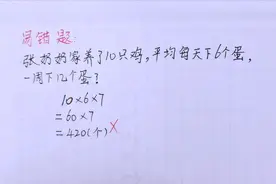 周错题:
张奶奶家养了10只鸡,平均每天下6个蛋,
一周下几个蛋?
10×6×7
=60×7
=420(个) ×